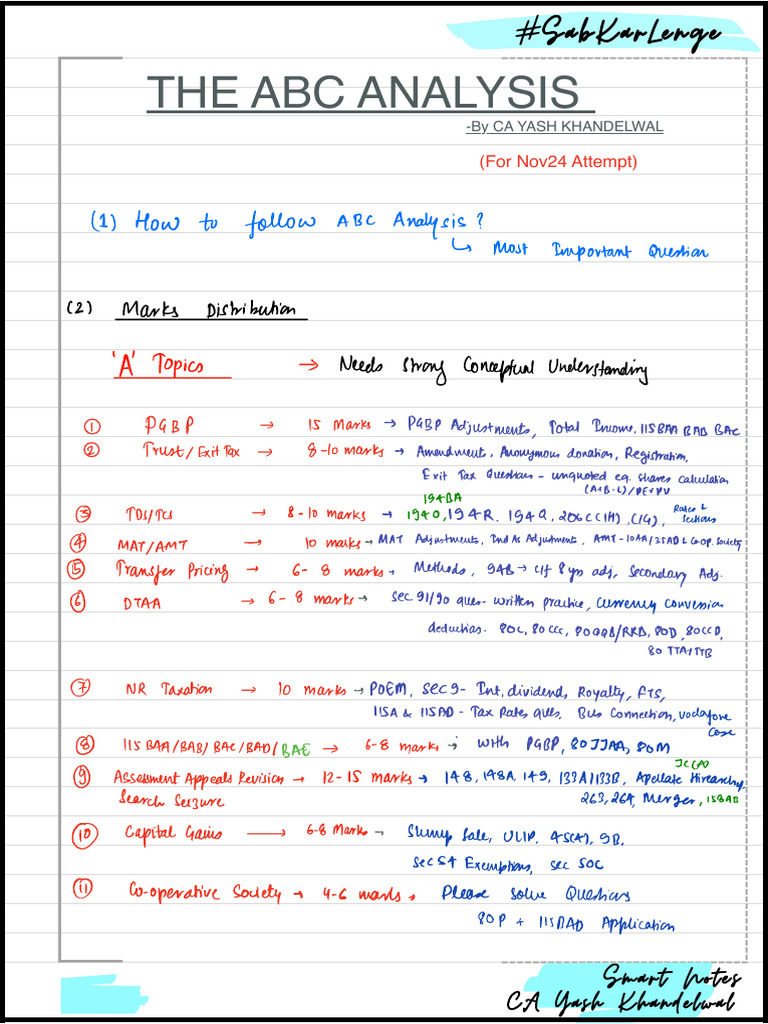 #SabKarLenge
THE ABC ANALYSIS
-By CA YASH KHANDELWAL
(For Nov24 Attempt)
(1) How to follow ABC Analysis?
↳ Most Important Question
(2) Marks Distribution
'A' Topics → Needs Strong Conceptual Understanding
① PGBP → 15 Marks → PGBP Adjustments, Total Income, 115BAA BAB BAC
② Trust/Exit Tax → 8-10 marks → Amendment, Anonymous donation, Registration,
Exit Tax Questions - unquoted eq. shares calculation
(A+B-L)/PE×PV
194BA
③ TDS/TCS → 8-10 marks → 194O, 194R, 194Q, 206C(1H), C(1G), Rates & Sections
④ MAT/AMT → 10 marks → MAT Adjustments, Ind As Adjustments, AMT-10AA/35AD & Co-op. Society
⑤ Transfer Pricing → 6-8 marks → Methods, 94B → c/f 8 yrs adj, Secondary Adj.
⑥ DTAA → 6-8 marks → Sec 91/90 ques- written practice, Currency Conversion
deductions. 80C, 80CCC, 80QQB/RRB, 80D, 80CCD,
80 TTA/TTB
⑦ NR Taxation → 10 marks → POEM, Sec 9- Int, dividend, Royalty, FTS,
115A & 115AD - Tax Rates ques, Bus Connection, Vodafone Case
⑧ 115BAA/BAB/BAC/BAD/BAE → 6-8 marks → with PGBP, 80JJAA, 80M
JCCA)
⑨ Assessment Appeals Revision → 12-15 marks → 148, 148A, 149, 133A/133B, Apellate Hirearchy
Search Seizure 263, 264, Merger, 158AB
⑩ Capital Gains → 6-8 Marks → Slump Sale, ULIP, 45(4), 9B,
Sec 54 Exemptions, Sec 50C
⑪ Co-operative Society → 4-6 marks → Please solve Questions
80P + 115BAD Application
Smart Notes
CA Yash Khandelwal